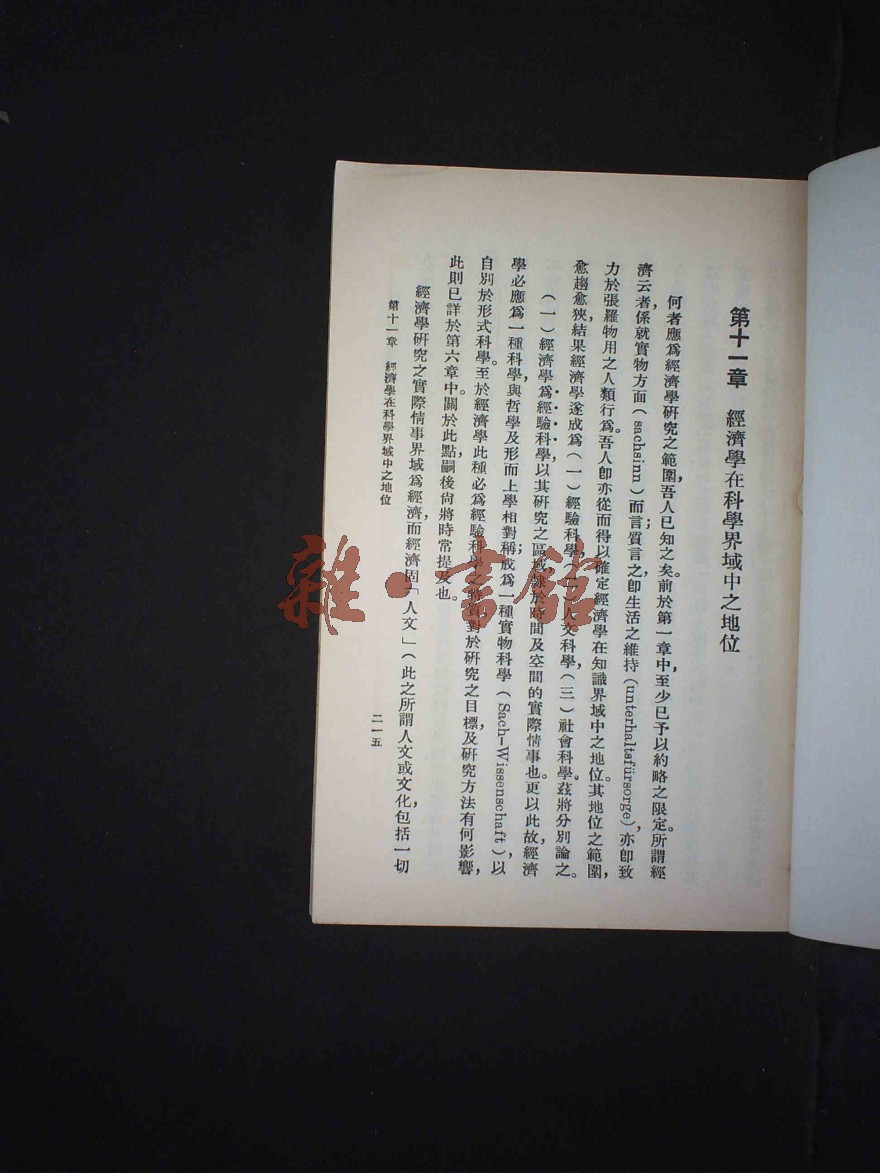 第十一章　經濟學在科學界域中之地位
何者應爲經濟學研究之範圍，吾人已知之矣。前於第一章中，至少已予以約略之限定。所謂經
濟云者，係就實物方面（sachsinn）而言；質言之，卽生活之維持（unterhaltsfürsorge），亦卽致
力於張羅物用之人類行爲。吾人卽亦從而得以確定經濟學在知識界域中之地位。其地位之範圍，
愈趨愈狹，結果經濟學遂成爲（一）經驗科學（二）人文科學（三）社會科學。茲將分別論之。
（一）經濟學爲經驗科學，以其研究之區域，隸於時間及空間的實際情事也。更以此故，經濟
學必應爲一種科學，與哲學及形而上學相對稱；成爲一種實物科學（Sach-Wissenschaft），以
自別於形式科學。至於經濟學此種必爲經驗科學之特質，對於研究之目標及研究方法有何影響，
此則已詳於第六章中。關於此點，嗣後尙將時常提及也。
經濟學研究之實際情事界域爲經濟，而經濟固「人文」（此之所謂人文或文化，包括一切
第十一章　經濟學在科學界域中之地位
二一五
雜·書館